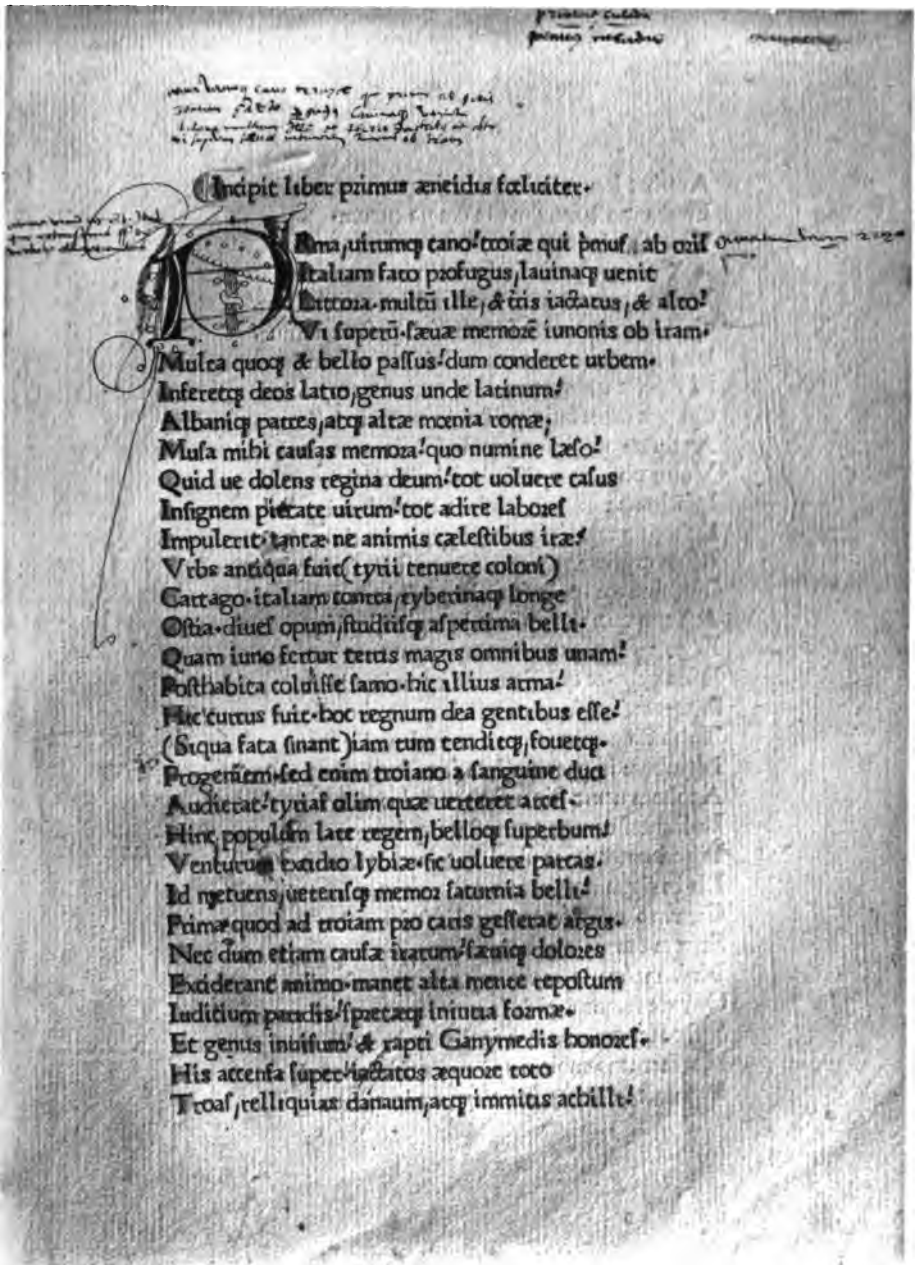 Incipit liber primus æneidis fœliciter.
Rma, uirumq; cano: troiæ qui p̄muſ, ab oriſ
Italiam fato profugus, lauinaq; uenit
Littora. multū ille, & t̄ris iactatus, & alto:
Vi ſuperū. ſæuæ memorē iunonis ob iram.
Multa quoq; & bello paſſus: dum conderet urbem.
Inferetq; deos latio, genus unde latinum:
Albaniq; patres, atq; altæ mœnia romæ;
Muſa mihi cauſas memora: quo numine læſo:
Quid ue dolens regina deum: tot uoluere caſus
Inſignem pietate uirum: tot adire laboreſ
Impulerit: tantæ ne animis cæleſtibus iræ:
Vrbs antiqua fuit (tyrii tenuere coloni)
Cartago. italiam contra, tyberinaq; longe
Oſtia. diueſ opum, ſtudiiſq; aſperrima belli.
Quam iuno fertur terris magis omnibus unam:
Poſthabita coluiſſe ſamo. hic illius arma:
Hic currus fuit. hoc regnum dea gentibus eſſe:
(Siqua fata ſinant) iam tum tenditq;, fouetq;.
Progeniem. ſed enim troiano a ſanguine duci
Audierat: tyriaſ olim quæ uerteret arceſ.
Hinc populum late regem, belloq; ſuperbum:
Venturum exidio lybiæ. ſic uoluere parcas.
Id metuens, ueteriſq; memor ſaturnia belli:
Prima quod ad troiam pro caris geſſerat argis.
Nec dum etiam cauſæ irarum: ſæuiq; dolores
Exciderant animo. manet alta mente repoſtum
Iuditium paridis: ſpretæq; iniuria formæ.
Et genus inuiſum: & rapti Ganymedis honoreſ.
His accenſa ſuper: iactatos æquore toto
Troaſ, relliquias danaum, atq; immitis achilli: